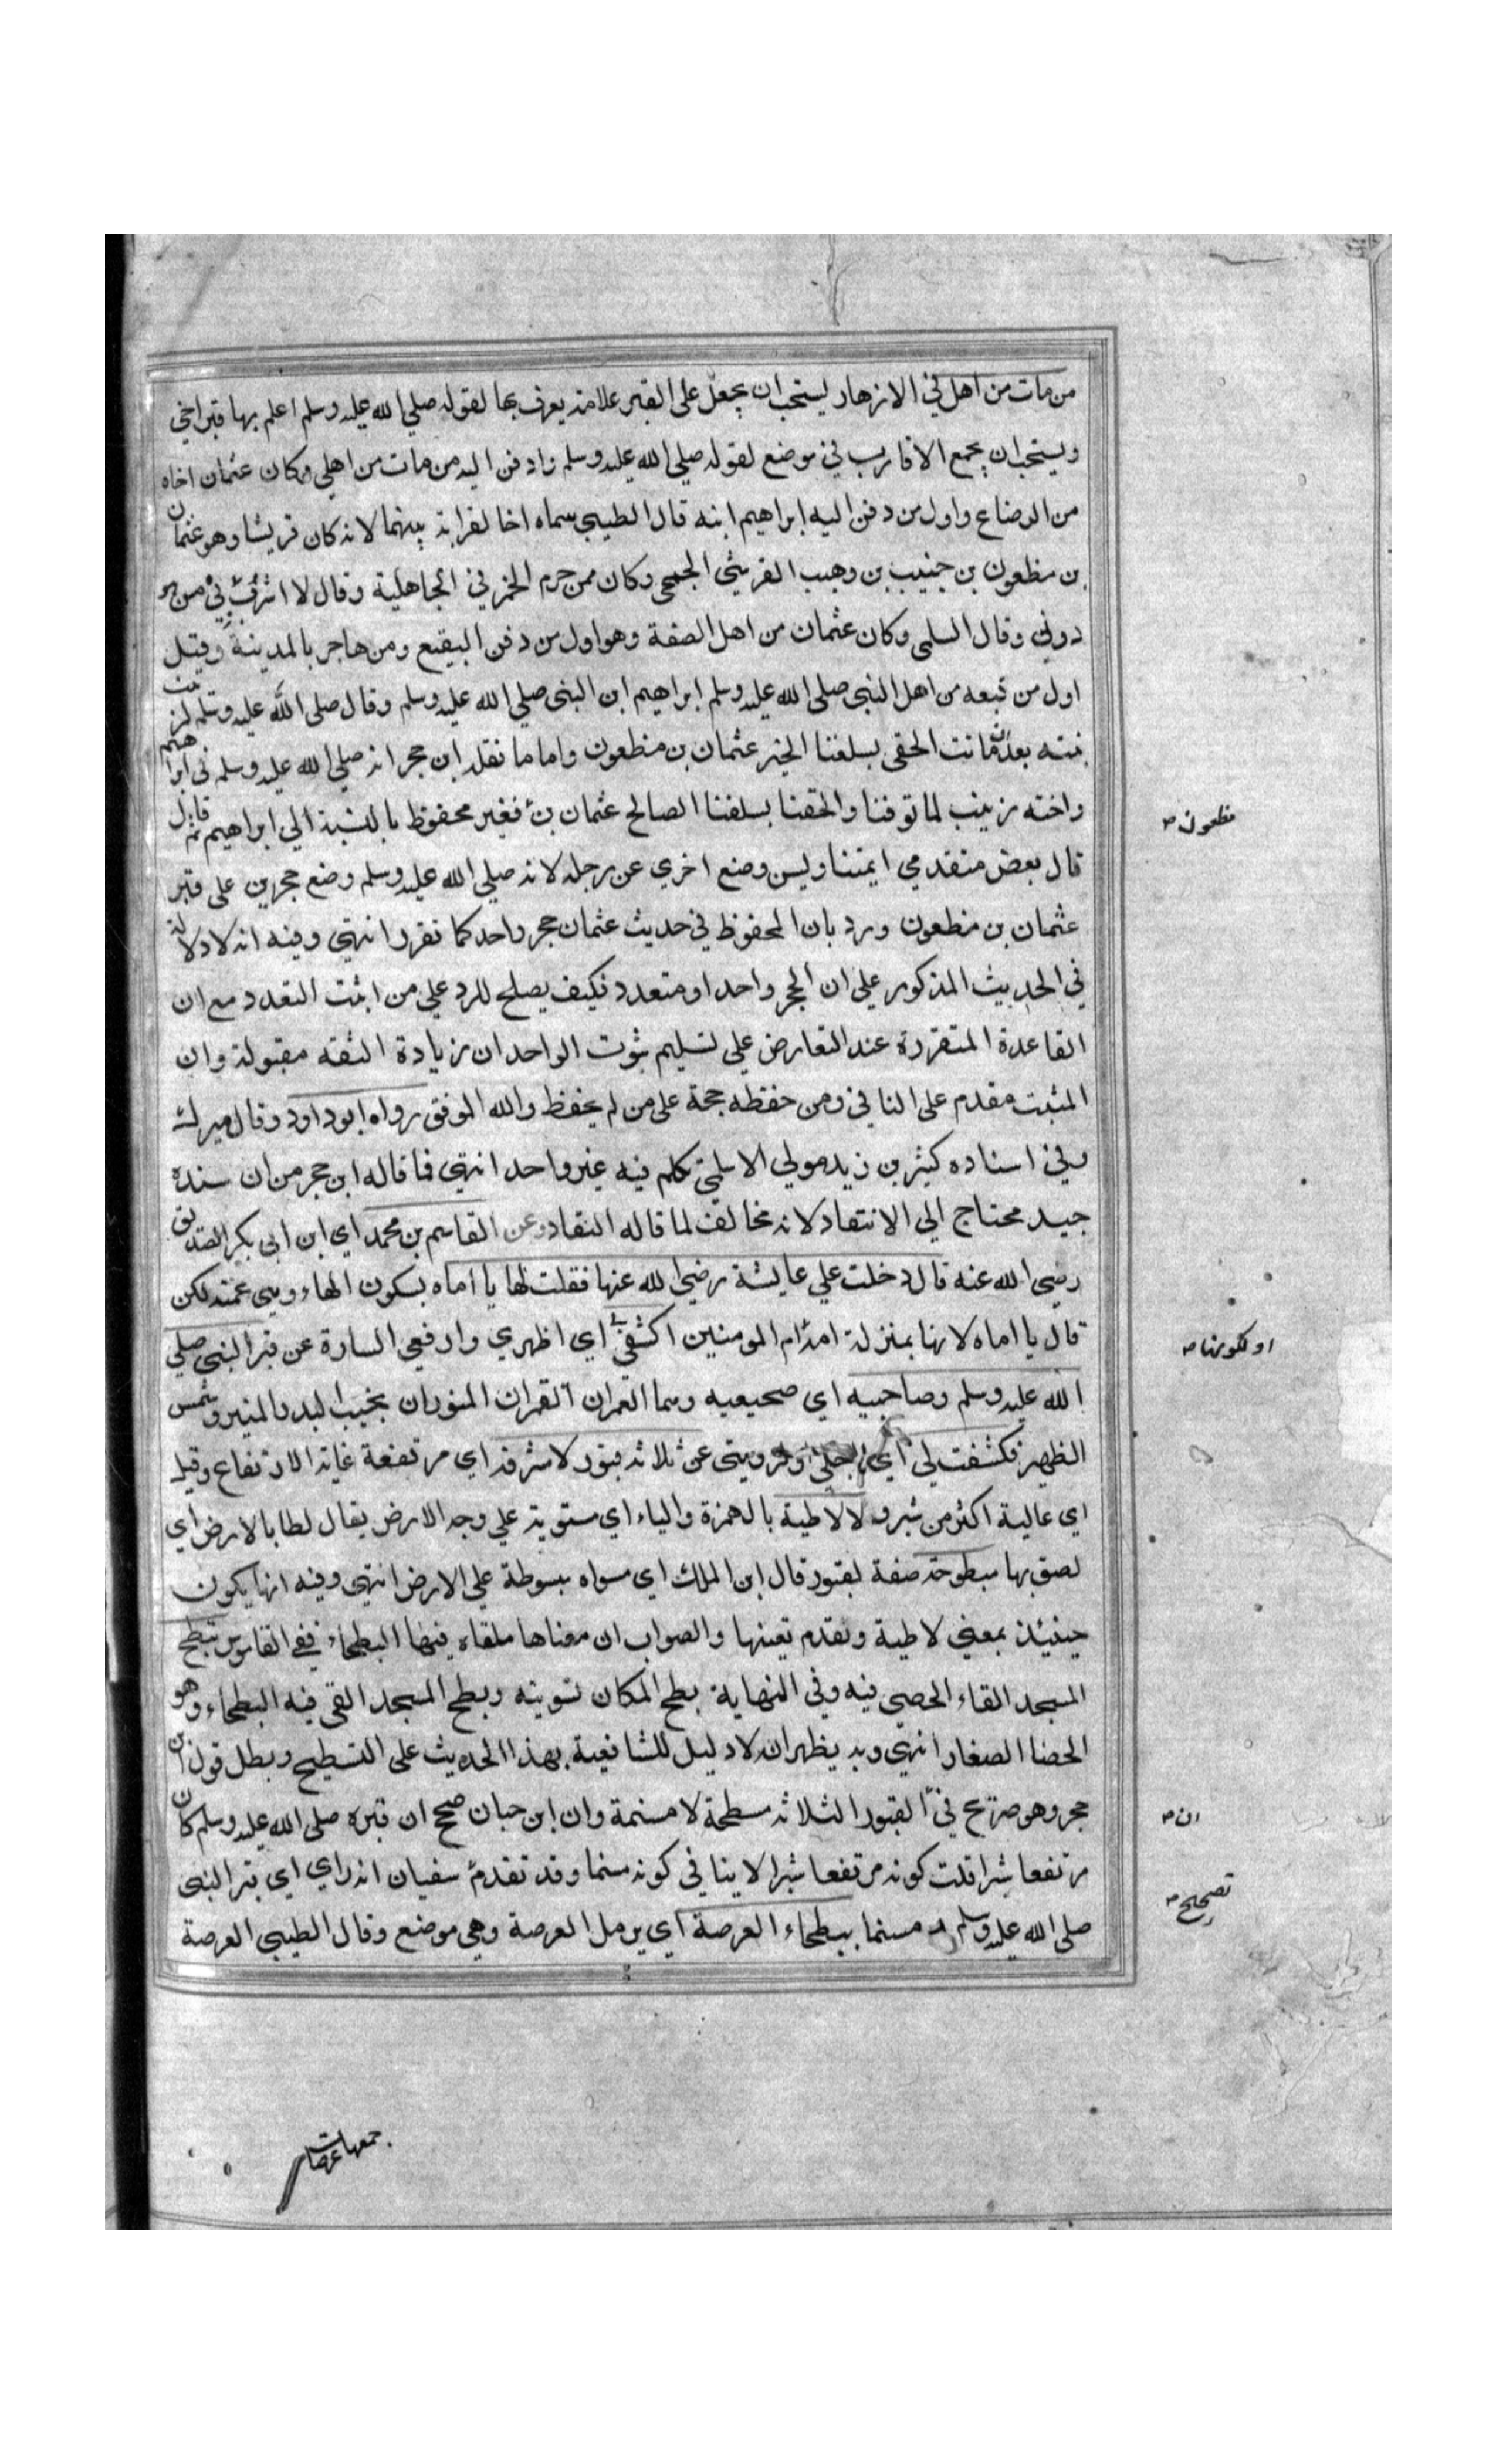 من مات من اهل في الازهار يستحب ان يجعل على القبر علامة يعرف بها لقوله صلي الله عليه وسلم اعلم بها قبر اخي
ويستحب ان يجمع الاقارب في موضع لقوله صلي الله عليه وسلم وادفن اليه من مات من اهلي وكان عثمان اخاه
من الرضاع واول من دفن اليه ابراهيم ابنه قال الطيبي سماه اخا لقرابة بينهما لانه كان قريشا وهو عثمان
بن مظعون بن حبيب بن وهب القريشي الجمحي وكان ممن حرم الخمر في الجاهلية وقال لا اشرب
دوني وقال السلمي وكان عثمان من اهل الصفة وهو اول من دفن البقيع ومن هاجر بالمدينة وقيل
اول من تبعه من اهل النبي صلي الله عليه وسلم ابراهيم ابن النبي صلي الله عليه وسلم وقال صلي الله عليه وسلم لزينب
بنته بعد ماتت الحقي بسلفنا الخير عثمان بن مظعون واما ما نقله ابن حجر انه صلي الله عليه وسلم في ابراهيم
واخته زينب لما توفنا والحقنا بسلفنا الصالح عثمان بن فغير محفوظ بالنسبة الي ابراهيم ثم قال
قال بعض متقدمي ايمتنا وليس وضع اخري عن رجله لانه صلي الله عليه وسلم وضع حجرين على قبر
عثمان بن مظعون ورد بان المحفوظ في حديث عثمان حجر واحد كما تقرر انتهي وفيه انه لا دلالة
في الحديث المذكور علي ان الحجر واحد او متعدد فكيف يصلح للرد علي من اثبت التعدد مع ان
القاعدة المتقررة عند التعارض علي تسليم ثبوت الواحد ان زيادة الثقه مقبولة وان
المثبت مقدم على النافي ومن حفظه حجة على من لم يحفظ والله الموفق رواه ابو داود وقال ميرك
وفي اسناده كثير بن زيد مولي الاسلمي تكلم فيه غير واحد انتهي فما قاله ابن حجر من ان سنده
جيد محتاج الي الانتقاد لانه مخالف لما قاله النقاد وعن القاسم بن محمد اي ابن ابي بكر الصديق
رضي الله عنه قال دخلت علي عايشة رضي الله عنها فقلت لها يا اماه بسكون الهاء وهي عمته لكن
قال يا اماه لانها بمنزلة امه ام المومنين اكشفي لي اي اظهري وارفعي الستارة عن قبر النبي صلي
الله عليه وسلم وصاحبيه اي ضجيعيه وهما القمران المنوران بجنب البدر المنير وشمس
الظهيرة فكشفت لي اي لاجلي او لرويتي عن ثلاثة قبور لا مشرفة اي مرتفعة غاية الارتفاع وقيل
اي عالية اكثر من شبر ولا لاطية بالهمزة والياء اي مستوية علي وجه الارض يقال لطا بالارض اي
لصق بها مبطوحة صفة لقبور قال ابن الملك اي مسواه مبسوطة علي الارض انتهي وفيه انها يكون
حينئذ بمعني لاطية وتقدم نفيها والصواب ان معناها ملقاه فيها البطحاء ففي القاموس تبطح
المسجد القاء الحصي فيه وفي النهاية بطح المكان تسويته وبطح المسجد القي فيه البطحاء وهو
الحصا الصغار انتهي وبه يظهر ان لا دليل للشافعية بهذا الحديث على التسطيح وبطل قول ابن
حجر وهو صريح في القبور الثلاثة مسطحة لا مسنمة وان ابن حبان صحح ان قبره صلي الله عليه وسلم كان
مرتفعا شبرا قلت كونه مرتفعا شبرا لا ينافي كونه مسنما وقد تقدم سفيان انه راي اي قبر النبي
صلي الله عليه وسلم مسنما ببطحاء العرصة اي برمل العرصة وهي موضع وقال الطيبي العرصة
مظعون صح
او لكونها صح
ان صح
تصحيح صح
جمعها عرصات